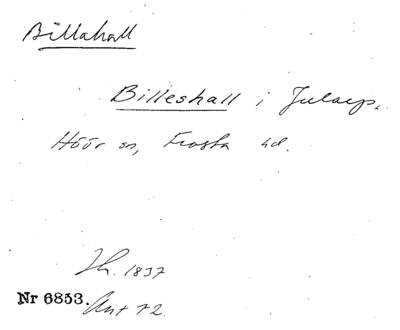 Billahall
Billeshall i Jularp.
Höör sn, Frosta hd.
Jh. 1837
Nr 6853. Ant 72.